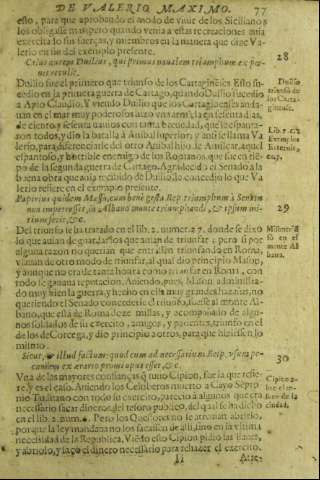 DE VALERIO MAXIMO. 77
esto, para que aprobando el modo de viuir de los Sicilianos y
los obligasse
exercita lo sus fuerças, y miembros en la manera que dize Va-
lerio en fin del exemplo presente.
Caius autem Duilius, qui primus naualem triumphum ex pœ-
nis retulit.
28
Duilio fue el primero que triunfò de los Cartagineses Esto su-
cedio en la primera guerra de Cartago, quando Duilio sucedio
a Apio Claudio. Y viendo Duilio que los Cartagineses anda-
uan en el mar muy poderosos hizo vna armada en sesenta dias,
de ciento y sesenta nauios con tanta breuedad, que los espanta-
con todos, y dio la batalla à Anibal superior, y ansi se llama Va-
lerio, para diferenciarle del otro Anibal hijo de Amilcar, aquel
espantoso, y horrible enemigo de los Romanos, que fue en tiẽ-
po de la segunda guerra de Cartago. Agradecido el Senado a la
buena obra que auia recibido de Duilio, le concedio lo que Va
lerio refiere en el exemplo presente.
Duilio
triunfò de
los Carta-
gineses.
Lib. 7. c. 2
Exemplos
Externos,
Papirius quidem Masso, cum bene gesta Rep. triumphum à Senatu
non impetrasset, in Albano monte triumphandi, & ipsum ini-
tium fecit, &c.
29
Del triunfo se ha tratado en el lib. 2. numer. 47. donde se dixo
lo que auian de guardar los que auian de triunfar; pero si por
alguna razon no querian que entrassen triunfando en Roma,
vsauan de otro modo de triunfar, al qual dio principio Masso,
y aunque no era de tanta honra como triunfar en Roma, con
todo se ganaua reputacion. Auiendo, pues, Masso administra-
do muy bien la guerra, y hecho en ella muy grandes hazañas, no
queriendo el Senado concederle el triunfo, fuesse al monte Al-
bano, que esta de Roma doze millas, y acompañado de algu-
nos soldados de su exercito, amigos, y parientes, triunfò en el
de los de Corcega, y dio principio a otros, para que hiziessen lo
mismo.
Masso triũ
fò en el
monte Al
bano.
Sicut, & illud factum: quod cum ad necessarium Reip. vsum pe-
cuniam ex ærario promi opus esset, &c.
30
Vna de las mayores confianças q̃ tuuo Cipion, fue la que refie-
re, y es el caso. Auiendo los Celtiberos muerto a Gayo Sepro-
nio Tuditano con todo su exercito, parecio a algunos que era
necessario sacar dineros del tesoro publico, del qual se ha dicho
en el lib. 2. num. 4. Pero los Questores no se atreuian abrirlo,
porque la ley mandaua no los sacassen de alli, sino en la vltima
necessidad de la Republica, Viẽdo esto Cipion pidio las llaues,
y abriolo, y sacò el dinero necessario para rehazer el exercito.
Cipion
ciudad.